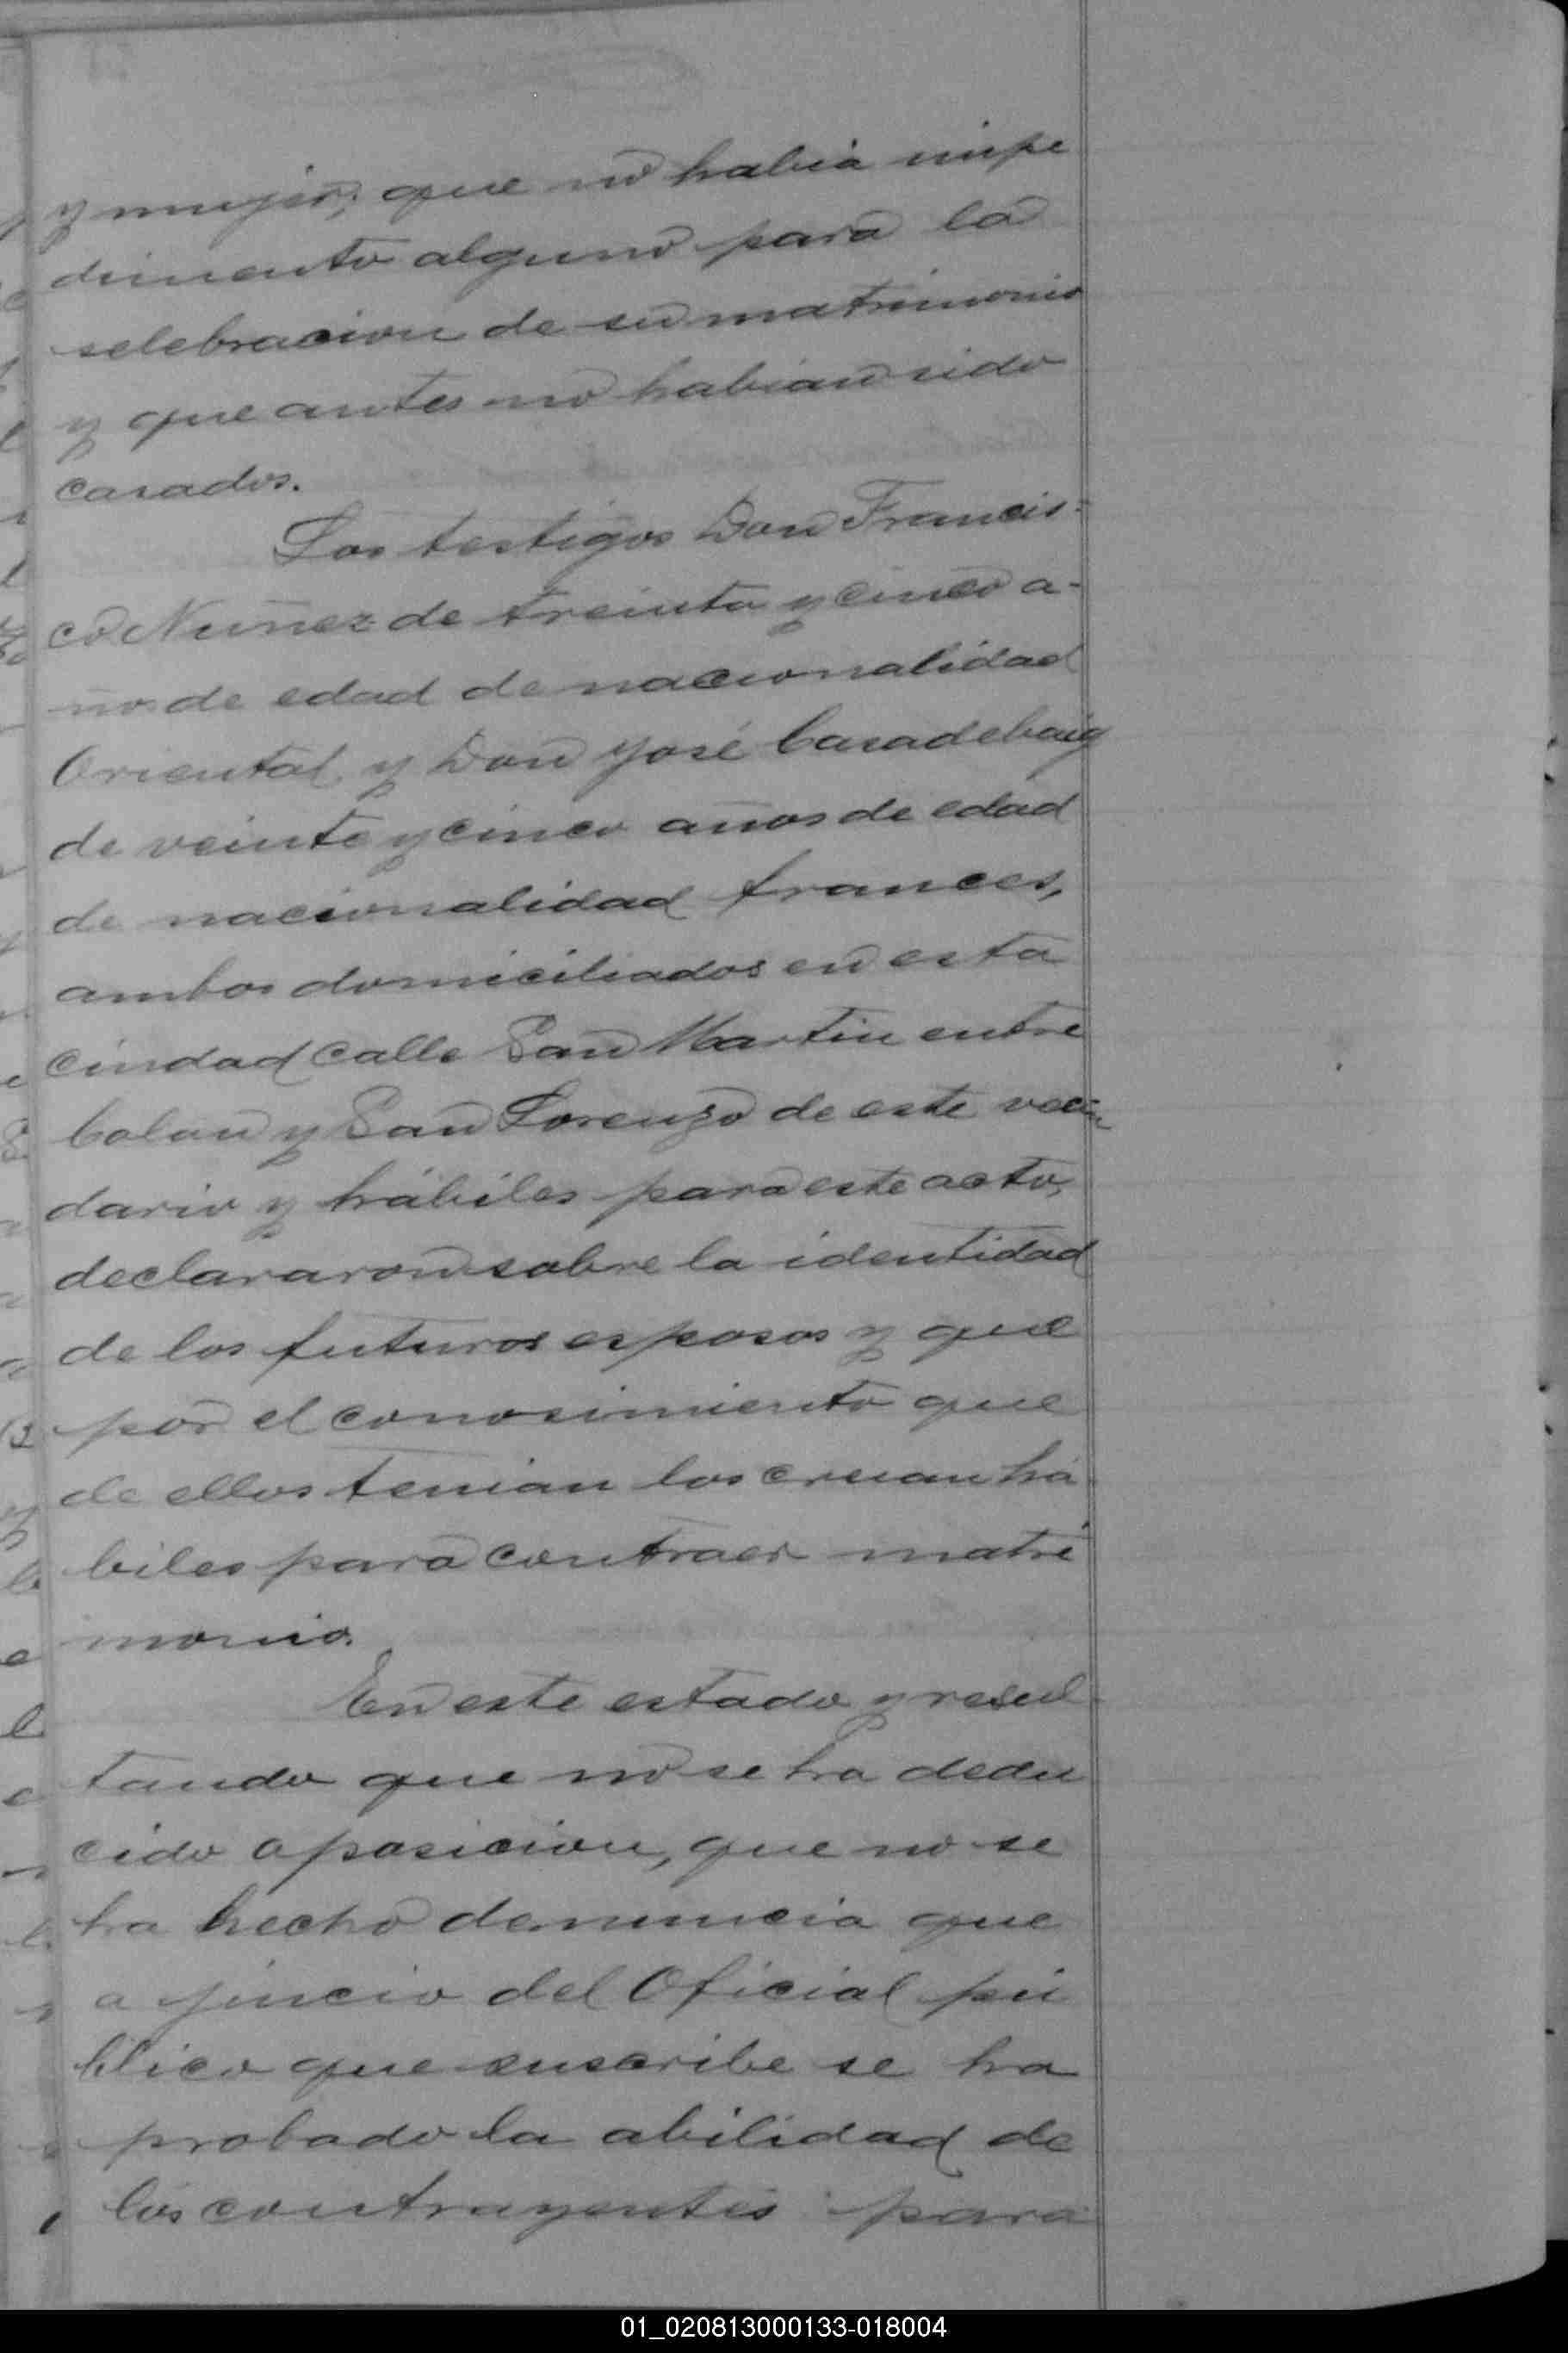 y mujer; que no habia impe
dimento alguno para la
selebracion de su matrimonio
y que antes no habian sido
casados.
Los testigos Don Francis-
co Nuñez de treinta y cinco a-
ños de edad de nacionalidad
Oriental y Don José Casadebaig
de veinte y cinco años de edad
de nacionalidad frances,
ambos domiciliados en esta
ciudad calle San Martin entre
Colon y San Lorenzo de este vecin
dario y hábiles para este acto,
declararon sobre la identidad
de los futuros esposos y que
por el conosimiento que
de ellos tenian los creian há
biles para contraer matri
monio.
En este estado y resul
tando que no se ha dedu
cido oposicion, que no se
ha hecho denuncia que
a juicio del Oficial pú
blico que suscribe se ha
probado la abilidad de
los contrayentes para
01_020813000133-018004